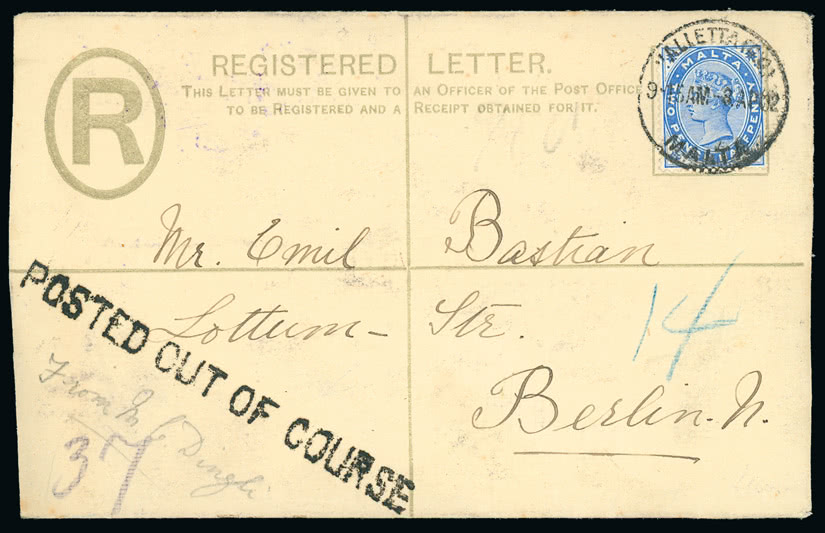 REGISTERED LETTER.
THIS LETTER MUST BE GIVEN TO AN OFFICER OF THE POST OFFICE
TO BE REGISTERED AND A RECEIPT OBTAINED FOR IT.
R
VALLETTA
MALTA
9-15AM
MALTA
Mr. Emil Bastian
Lottum- Str.
14
Berlin. N.
POSTED OUT OF COURSE
From
Dingli
37